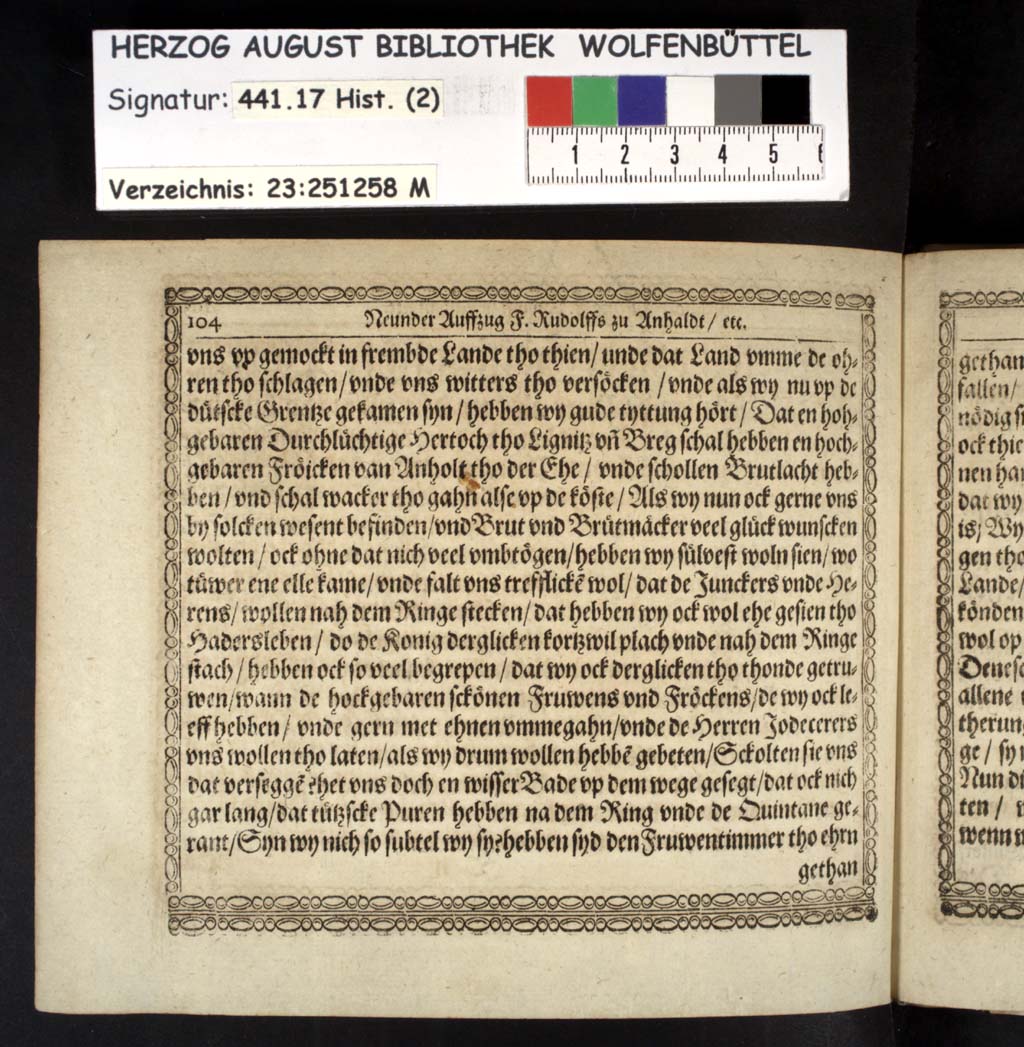 HERZOG AUGUST BIBLIOTHEK WOLFENBÜTTEL
Signatur: 441.17 Hist. (2)
1 2 3 4 5 6
Verzeichnis: 23:251258 M
104 Neunder Auffzug F. Rudolffs zu Anhaldt/ etc.
vns vp gemockt in frembde Lande tho thien/ unde dat Land vmme de oh⸗
ren tho schlagen/vnde vns witters tho versöcken /vnde als wy nu vp de
dütscke Grentze gekamen syn/ hebben wy gude tyttung hört/ Dat en hoh⸗
gebaren Durchlüchtige Hertoch tho Lignitz vñ Breg schal hebben en hoch⸗
gebaren Fröicken van Anholt tho der Ehe/ vnde schollen Brutlacht heb⸗
ben/vnd schal wacker tho gahn alse vp de köste/ Als wy nun ock gerne vns
by solcken wesent befinden/vnd Brut vnd Brütmäcker veel glück wunscken
wolten/ ock ohne dat nich veel vmbtögen/hebben wy sülvest woln sien/wo
tüwer ene elle kame/vnde falt vns trefflickẽ wol/ dat de Junckers vnde He⸗
rens/wollen nah dem Ringe stecken/dat hebben wy ock wol ehe gesien tho
Hadersleben/ do de Konig derglicken kortzwil plach vnde nah dem Ringe
stach/hebben ock so veel begrepen/dat wy ock derglicken tho thonde getru⸗
wen/wann de hockgebaren sckönen Fruwens vnd Fröckens/de wy ock le⸗
eff hebben/ vnde gern met ehnen vmmegahn/vnde de Herren Jodecerers
vns wollen tho laten/als wy drum wollen hebbẽ gebeten/Sckolten sie vns
dat verseggẽ?het vns doch en wisser Bade vp dem wege gesegt/dat ock nich
gar lang/dat tützscke Puren hebben na dem Ring vnde de Quintane ge⸗
rant/Syn wy nich so subtel wy sy?hebben syd den Fruwentimmer tho ehrn
gethan
gethan
fallen/
nödig
ock thie
nen
dat wy
is/Wy
gen tho
Lande/
könden
wol op
allene
therun
ge/
Nun
ten/
wenn